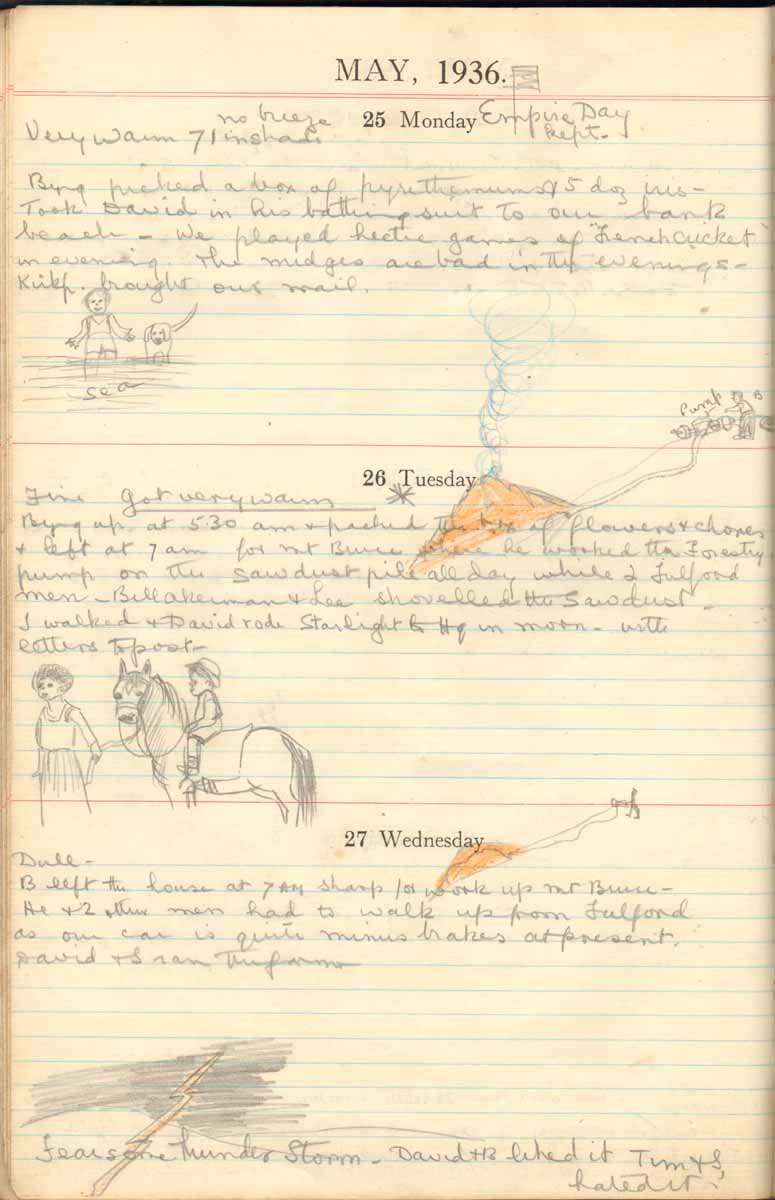 MAY, 1936.
25 Monday Empire Day
kept.
no breeze
Very warm 71 in shade
Byng picked a box of pyrethemums & 5 doz iris -
Took David in his bathing suit to our bank
beach - We played hectic games of "French Cricket"
in evening. The midges are bad in the evenings -
Kirkp. brought our mail.
sea
Pump B
26 Tuesday
Fine Got very warm
Byng up at 5.30 am & packed the box of flowers & chores
& left at 7 am for Mt Bruce where he worked the Forestry
pump on the sawdust pile all day while 2 Fulford
men - Bill Akerman & Lee shovelled the Sawdust -
I walked & David rode Starlight to Hq in morn - with
letters to post -
27 Wednesday
Dull -
B left the house at 7 AM sharp for work up Mt Bruce -
He & 2 other men had to walk up from Fulford
as our car is quite minus brakes at present.
David & I ran the farm
Fearsome Thunder Storm - David & B liked it Tim & I
hated it.